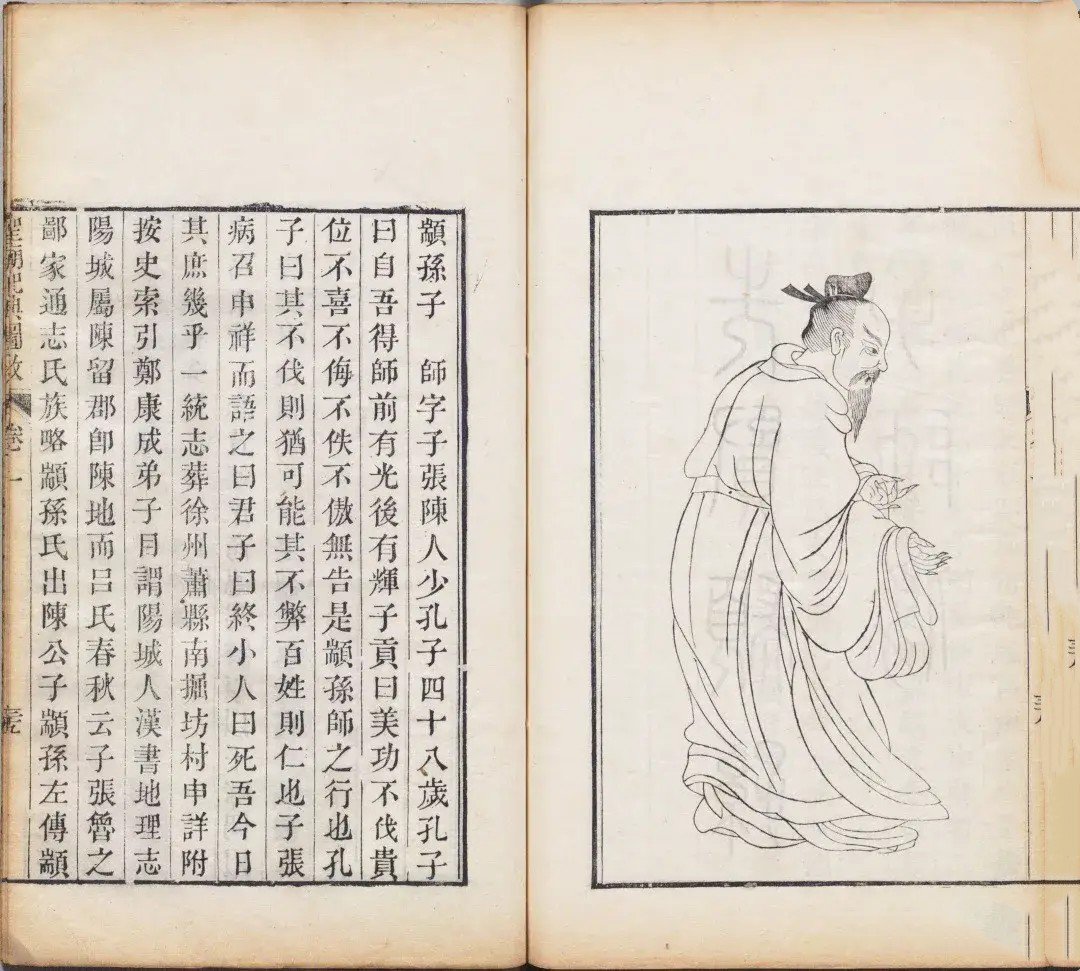 顓孫子　師字子張陳人少孔子四十八歲孔子
曰自吾得師前有光後有輝子貢曰美功不伐貴
位不喜不侮不佚不傲無告是顓孫師之行也孔
子曰其不伐則猶可能其不弊百姓則仁也子張
病召申祥而語之曰君子曰終小人曰死吾今日
其庶幾乎一統志葬徐州蕭縣南掘坊村申詳附
按史索引鄭康成弟子目謂陽城人漢書地理志
陽城屬陳留郡卽陳地而呂氏春秋云子張魯之
鄙家通志氏族略顓孫氏出陳公子顓孫左傳顓
聖廟祀典圖攷　卷一